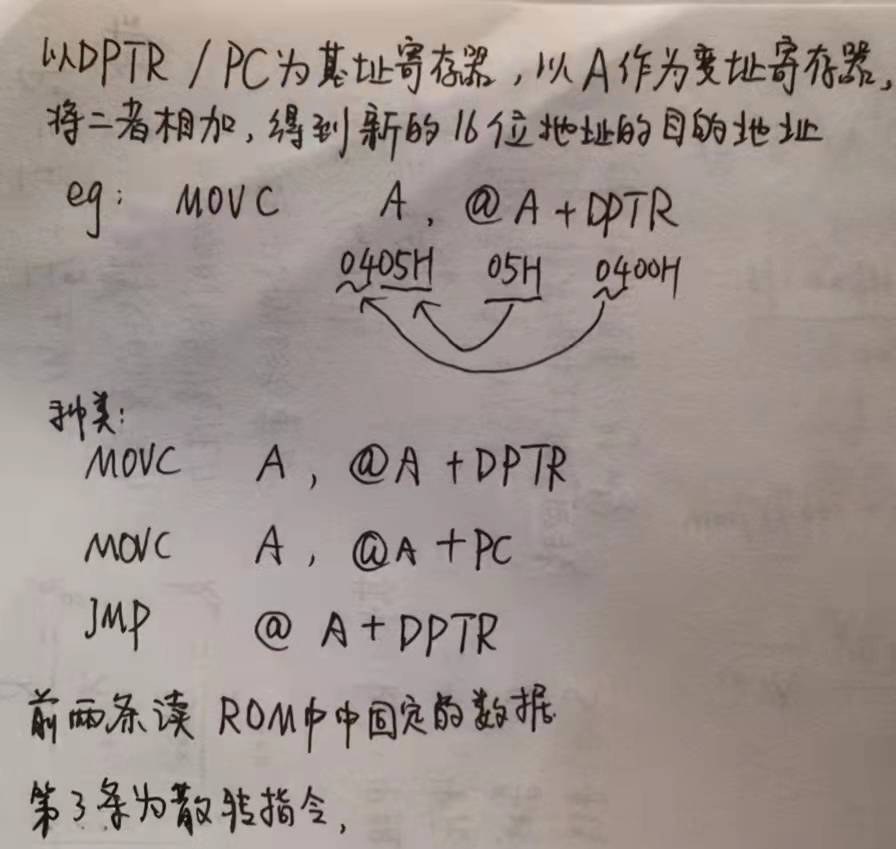 以DPTR / PC为基址寄存器，以A作为变址寄存器，
将二者相加，得到新的16位地址的目的地址
eg： MOVC A, @A+DPTR
0405H 05H 0400H
种类：
MOVC A, @A+DPTR
MOVC A, @A+PC
JMP @A+DPTR
前两条读 ROM中中固定的数据
第3条为散转指令，